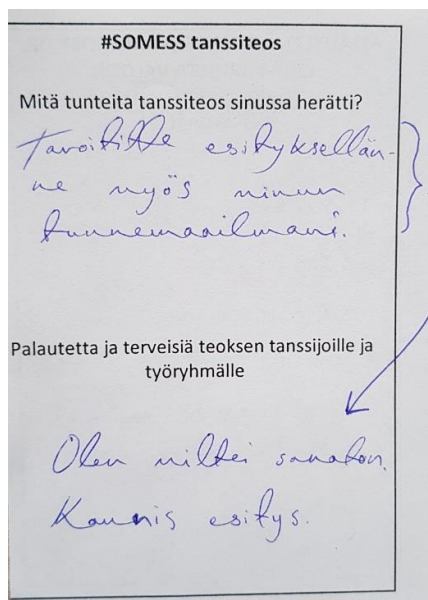 #SOMESS tanssiteos
Mitä tunteita tanssiteos sinussa herätti?
Tavoititte esityksellän-
ne myös minun
tunnemaailmani.
Palautetta ja terveisiä teoksen tanssijoille ja
työryhmälle
Olen miltei sanaton.
Kaunis esitys.